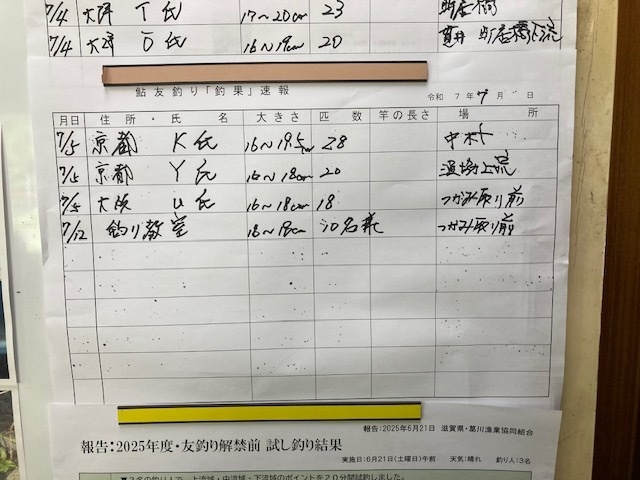 7/4 大坪 T氏 17~20cm 23 町居橋
7/4 大坪 O氏 16~19cm 20 貫井 町居橋下流
鮎友釣り「釣果」速報
令和 7年 7月 日
月日 住所・氏名 大きさ 匹数 竿の長さ 場所
7/5 京都 K氏 16~19.5cm 28 中村
7/5 京都 Y氏 16~18cm 20 上流
7/5 大阪 U氏 16~18cm 18 つかみ取り前
7/12 釣り教室 18cm つかみ取り前
報告:2025年6月21日 滋賀県・葛川漁業協同組合
報告:2025年度・友釣り解禁前 試し釣り結果
実施日:6月21日(土曜日)午前 天気:晴れ 釣り人:3名
▼3名の釣り人で、上流域・中流域・下流域のポイントを20分間試釣しました。